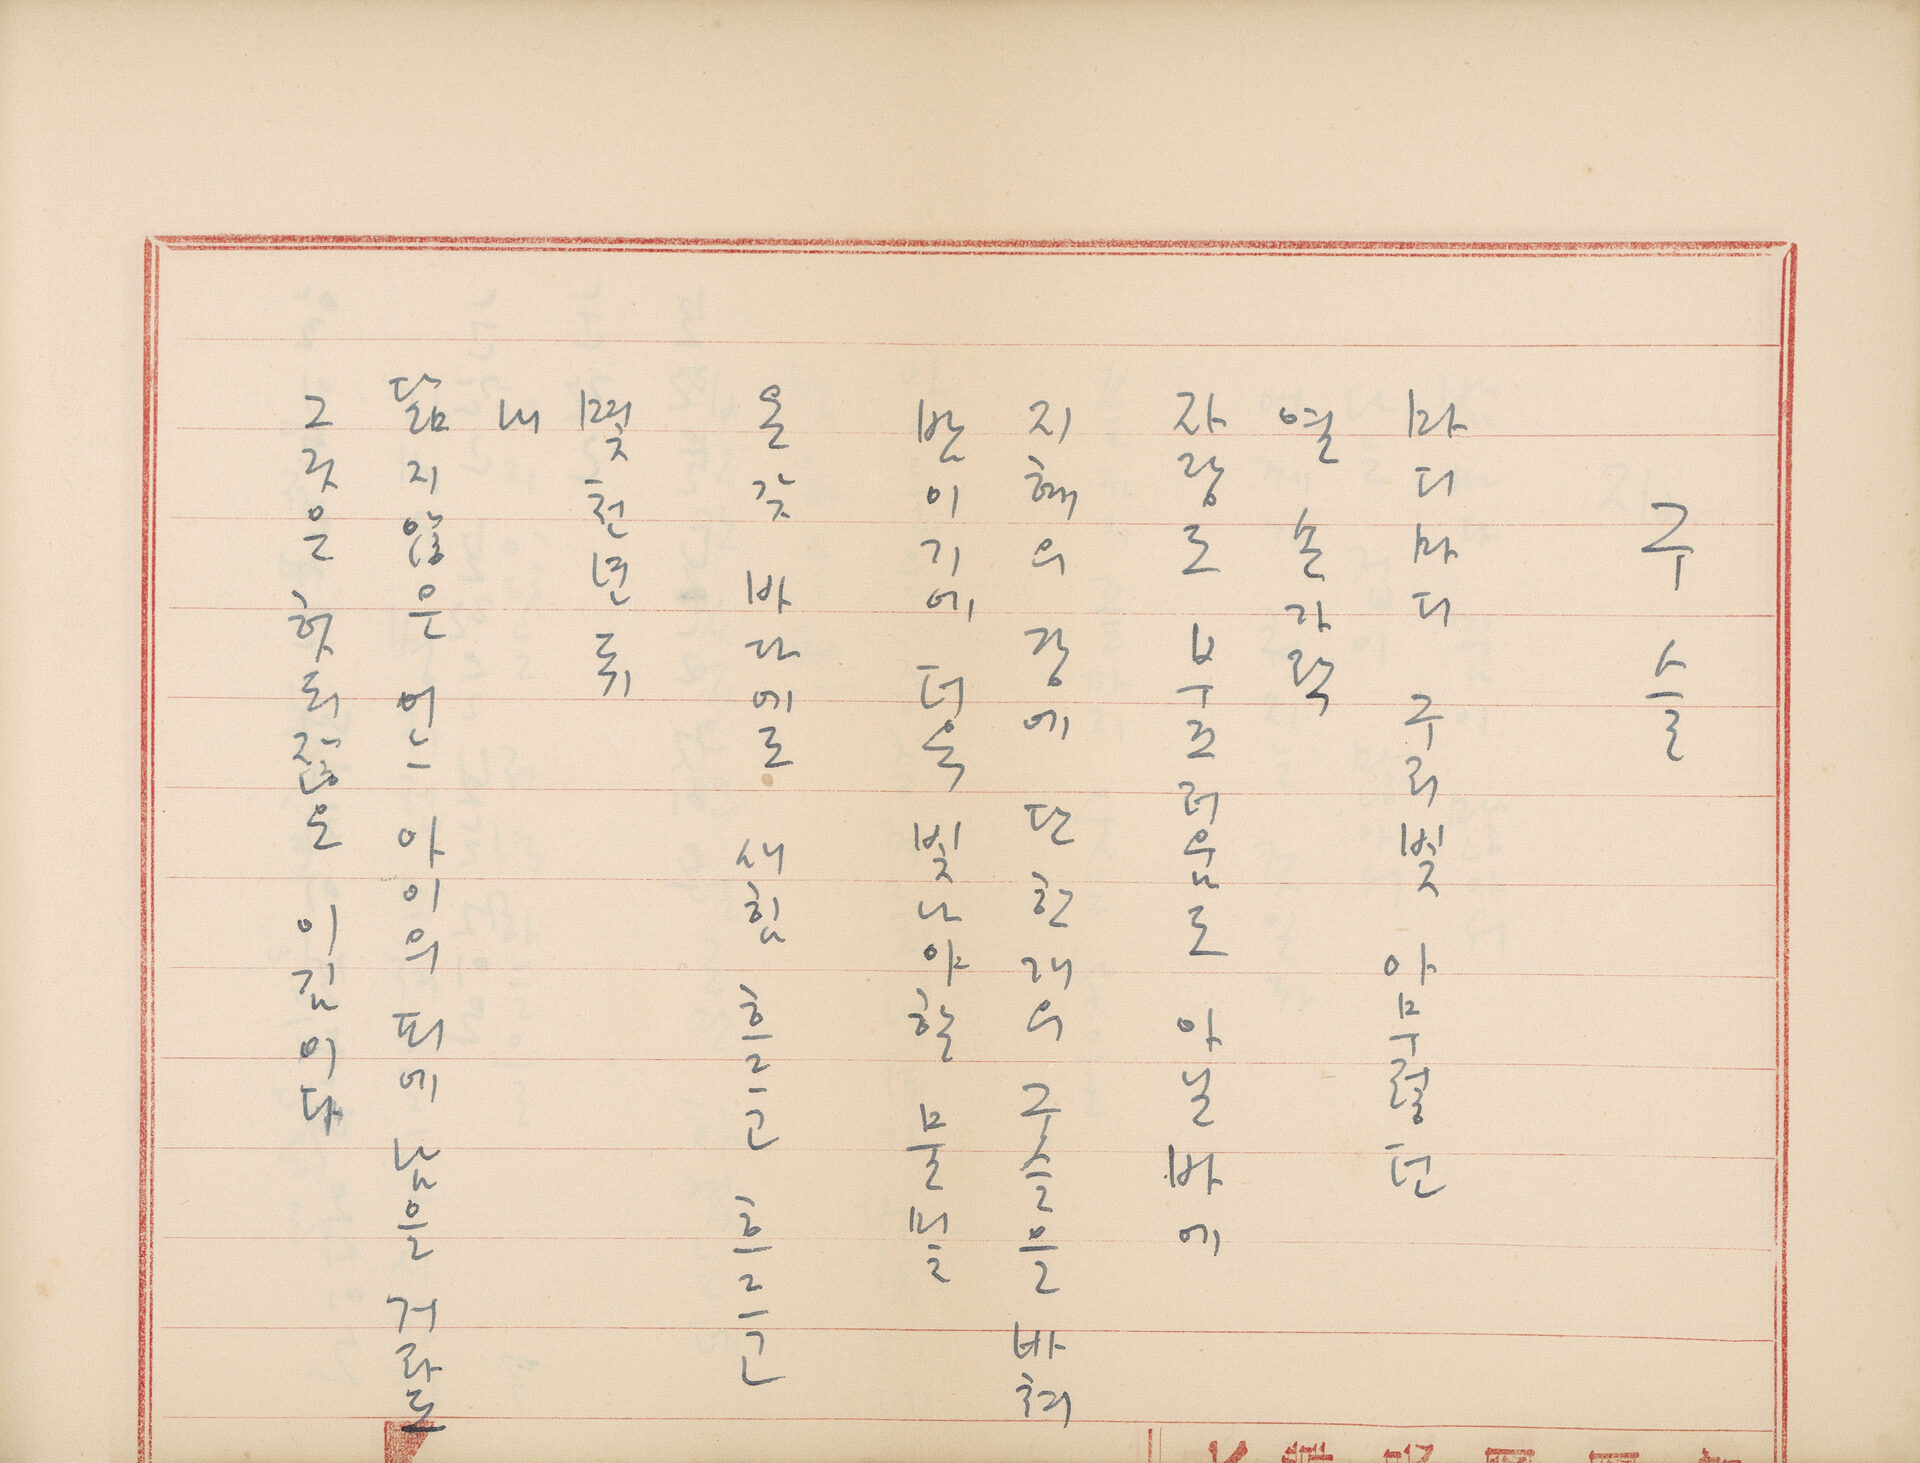 구슬
마디마디 구리빛 아무렇던
열 손가락
자랑도 부끄러움도 아닐바에
지혜의 강에 단 한개의 구슬을 바쳐
밤이기에 더욱 빛나야 할 물 밑
온갖 바다에로 새힘 흐르고 흐르고
몇 천년 뒤
내
닮지 않은 어느 아이의 피에 남을 거라도
그것은 헛되잖은 이김이다